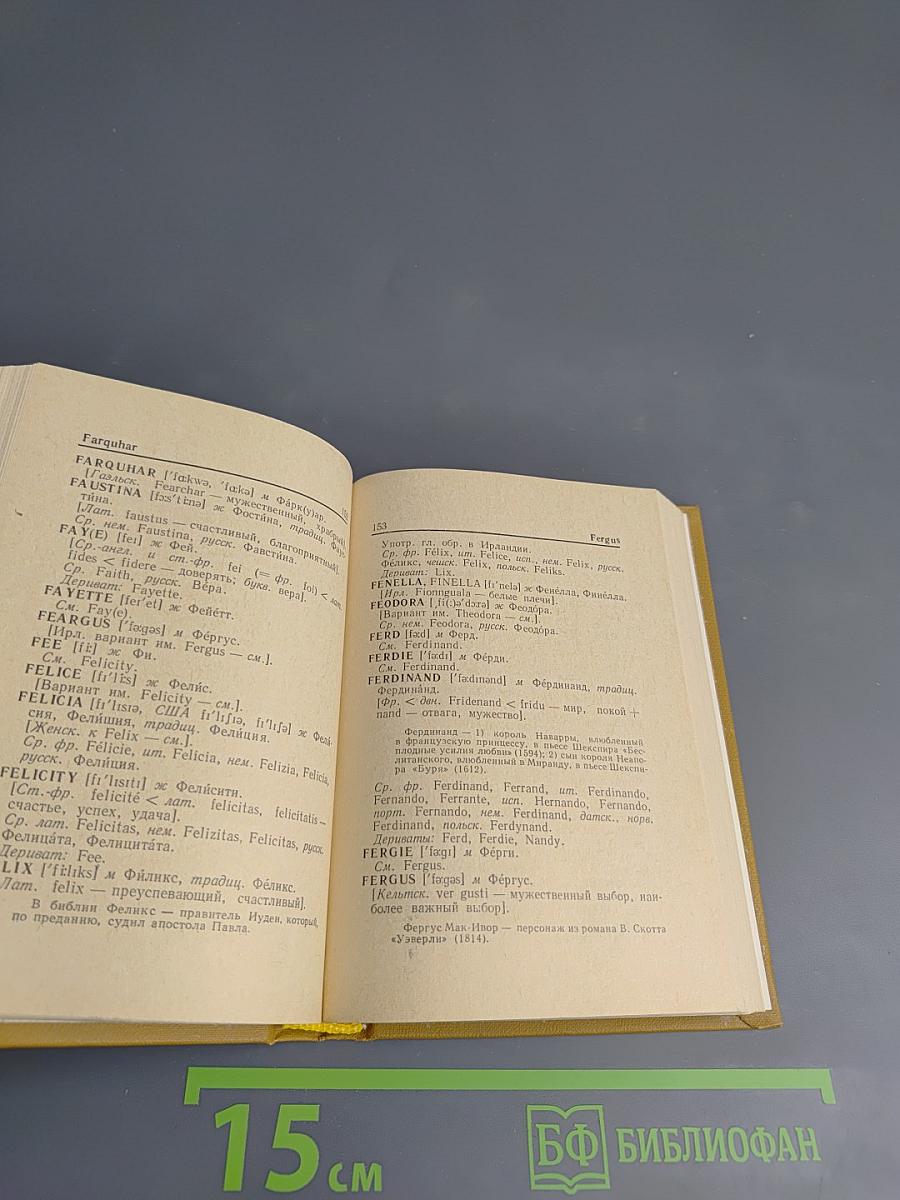 Farquhar
FARQUHAR ['fɑ:kwə, 'fɑ:kə] м Фа́рк(у)ар.
[Гаэльск. Fearchar — мужественный, храбрый]
FAUSTINA [fɔ:s'ti:nə] ж Фости́на, традиц. Фаус-
ти́на.
[Лат. faustus — счастливый, благоприятный].
Ср. нем. Faustina, русск. Фавсти́на.
FAY(E) [feɪ] ж Фей.
[Ср.-англ. и ст.-фр. fei (= фр. foi) < лат.
fides < fidere — доверять; букв. вера].
Ср. Faith, русск. Ве́ра.
Дериват: Fayette.
FAYETTE [feɪ'et] ж Фейе́тт.
См. Fay(e)
FEARGUS ['fə:gəs] м Фе́ргус.
[Ирл. вариант им. Fergus — см.].
FEE [fi:] ж Фи.
См. Felicity.
FELICE [fɪ'li:s] ж Фели́с.
[Вариант им. Felicity — см.].
FELICIA [fɪ'lɪsɪə, США fɪ'lɪʃɪə, fɪ'lɪʃə] ж Фели́-
сия, Фели́шия, традиц. Фели́ция.
[Женск. к Felix — см.].
Ср. фр. Félicie, ит. Felicia, нем. Felizia, Felicia,
русск. Фели́ция.
FELICITY [fɪ'lɪsɪtɪ] ж Фели́сити.
[Ст.-фр. felicité < лат. felicitas, felicitatis —
счастье, успех, удача].
Ср. лат. Felicitas, нем. Felizitas, Felicitas, русск.
Фелица́та, Фелицита́та.
Дериват: Fee.
LIX ['fi:lɪks] м Фи́ликс, традиц. Фе́ликс.
Лат. felix — преуспевающий, счастливый].
В библии Феликс — правитель Иудеи, который,
по преданию, судил апостола Павла.
153 Fergus
Употр. гл. обр. в Ирландии.
Ср. фр. Félix, ит. Felice, исп., нем. Felix, русск.
Фе́ликс, чешск. Felix, польск. Feliks.
Дериват: Lix.
FENELLA, FINELLA [fɪ'nelə] ж Фене́лла, Фине́лла.
[Ирл. Fionnguala — белые плечи].
FEODORA [ˌfi(:)ə'dɔ:rə] ж Феодо́ра.
[Вариант им. Theodora — см.].
Ср. нем. Feodora, русск. Феодо́ра.
FERD [fə:d] м Ферд.
См. Ferdinand.
FERDIE ['fə:dɪ] м Фе́рди.
См. Ferdinand.
FERDINAND ['fə:dɪnənd] м Фе́рдинанд, традиц.
Фердина́нд.
[Фр. < двн. Fridenand < fridu — мир, покой +
nand — отвага, мужество].
Фердинанд — 1) король Наварры, влюбленный
в французскую принцессу, в пьесе Шекспира «Бес-
плодные усилия любви» (1594); 2) сын короля Неапо-
литанского, влюбленный в Миранду, в пьесе Шекспи-
ра «Буря» (1612).
Ср. фр. Ferdinand, Ferrand, ит. Ferdinando,
Fernando, Ferrante, исп. Hernando, Fernando,
порт. Fernando, нем. Ferdinand, датск., норв.
Ferdinand, польск. Ferdynand.
Дериваты: Ferd, Ferdie, Nandy.
FERGIE ['fə:gɪ] м Фе́рги.
См. Fergus.
FERGUS ['fə:gəs] м Фе́ргус.
[Кельтск. ver gusti — мужественный выбор, наи-
более важный выбор].
Фергус Мак-Ивор — персонаж из романа В. Скотта
«Уэверли» (1814).
15 см
БФ БИБЛИОФАН